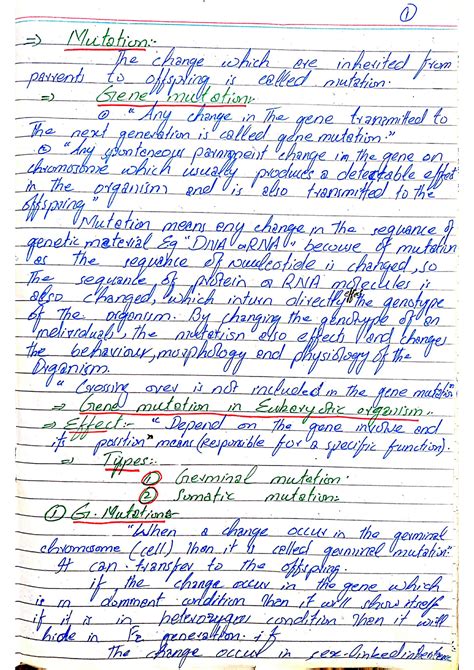 ①
⇒ Mutation:-
The change which are inherited from
parrents to offspring is called mutation.
⇒ Gene mutation:-
① "Any change in The gene transmitted to
The next generation is called gene mutation."
② "Any spontaneous parmanent change in the gene on
chromosome which usually produces a detectable effect
in the organism and is also transmitted to the
offspring"
Mutation means any change in the sequance of
genetic material Eg "DNA or RNA" because of mutation
as the sequance of Nucleotide is changed, so
The sequance of protein or RNA molecules is
also changed, which inturn directly effect the genotype
of the organism. By changing the genotype of an
individuals, the mutation also effect and changes
the behaviour, morphology and physiology of the
Organism.
"Crossing over is not included in the gene mutation"
⇒ Gene mutation in Eukaryotic organism:-
⇒ Effect:- "Depend on the gene involve and
its position" means (responsible for a specific function).
⇒ Types:-
① Germinal mutation.
② Sumatic mutation:
① G. Mutation:-
"When a change occur in the germinal
chromosome (cell) Then it is called germinal mutation"
It can transfer to the offspring.
if the change occur in the gene which
is in domment condition Then it will show itself
if it is in heterozygus condition Then it will
hide in F2 generation. if
The change occur in sex-linked